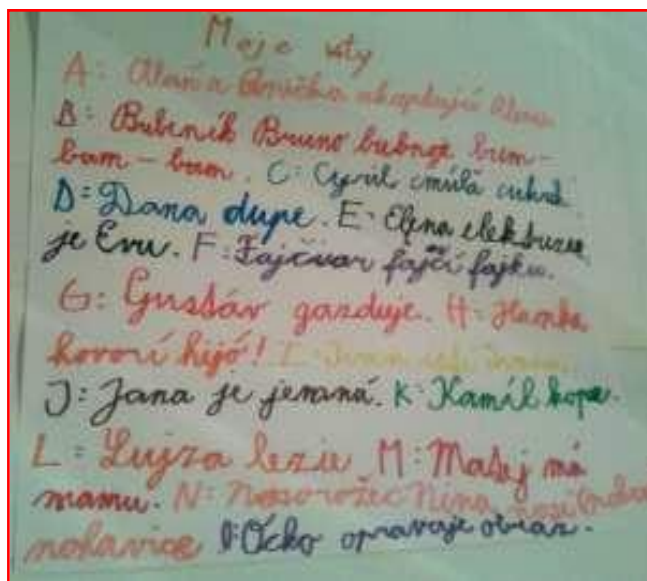 Moje vety
A: Alan a Anička
B: Bubeník Bruno bubnuje bum-
bam-bam. C: Cyril cmúľa cukrík.
D: Dana dupe. E: Elena elektrizu
je Evu. F: Fajčiar fajčí fajku.
G: Gustáv gazduje. H: Hanka
hovorí hijó! I: Ivan
J: Jana je jemná. K: Kamil kope.
L: Lujza lezie M: Matej má
mamu. N: Nosorožec Nina nosí
nohavice O: Ocko opravuje obraz.